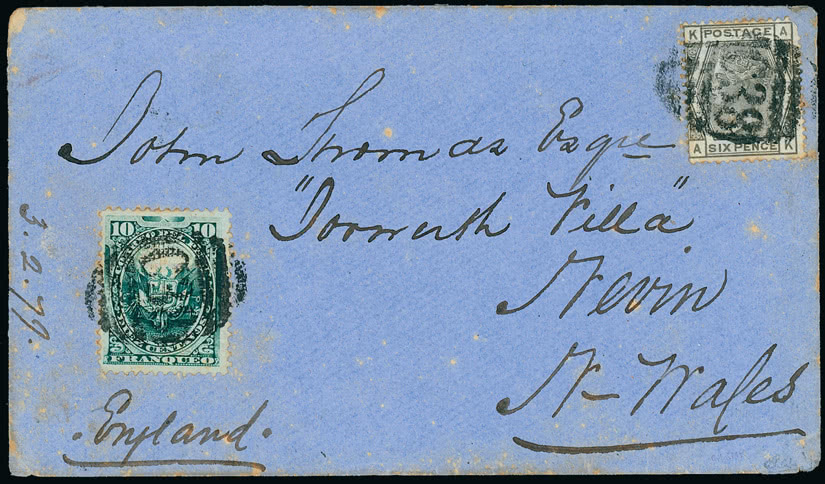 K POSTAGE A
A SIX PENCE K
John Thomas Esqre
"Iorwerth Villa"
Nevin
N- Wales
10 10
FRANQUEO
England.
3.2.79.